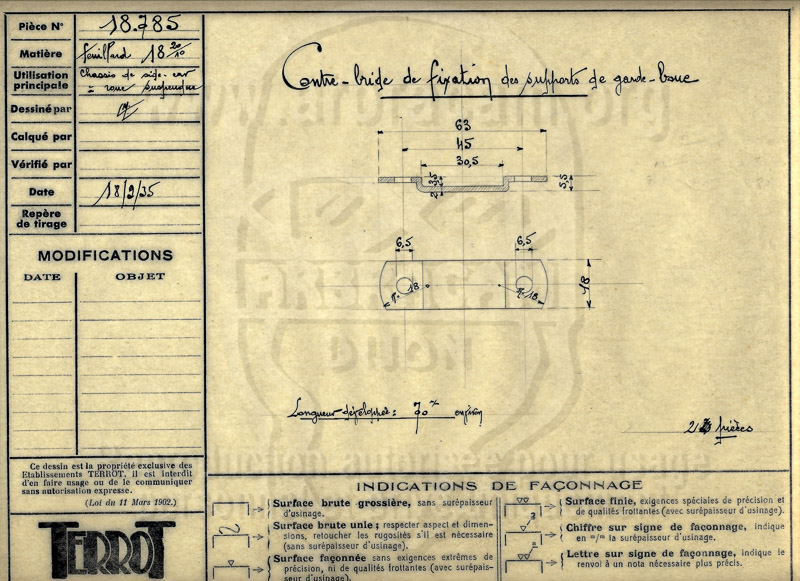 Pièce N° 18.785
Matière feuillard 18 20/10
Utilisation principale Chassis de side-car
= roue suspendue
Dessiné par
Calqué par
Vérifié par
Date 18/2/35
Repère de tirage
MODIFICATIONS
DATE OBJET
Ce dessin est la propriété exclusive des
Etablissements TERROT, il est interdit
d'en faire usage ou de le communiquer
sans autorisation expresse.
(Loi du 11 Mars 1902.)
TERROT
Contre-bride de fixation des supports de garde-boue
63
45
30,5
3,5
2
5,5
6,5 6,5
r. 18 r. 18
18
Longueur développée: 70 environ
2 pièces
INDICATIONS DE FAÇONNAGE
Surface brute grossière, sans surépaisseur
d'usinage.
Surface brute unie; respecter aspect et dimen-
sions, retoucher les rugosités s'il est nécessaire
(sans surépaisseur d'usinage).
Surface façonnée sans exigences extrêmes de
précision, ni de qualités frottantes (avec surépais-
seur d'usinage).
Surface finie, exigences spéciales de précision et
de qualités frottantes (avec surépaisseur d'usinage).
Chiffre sur signe de façonnage, indique
en m/m la surépaisseur d'usinage.
Lettre sur signe de façonnage, indique le
renvoi à un nota nécessaire plus précis.